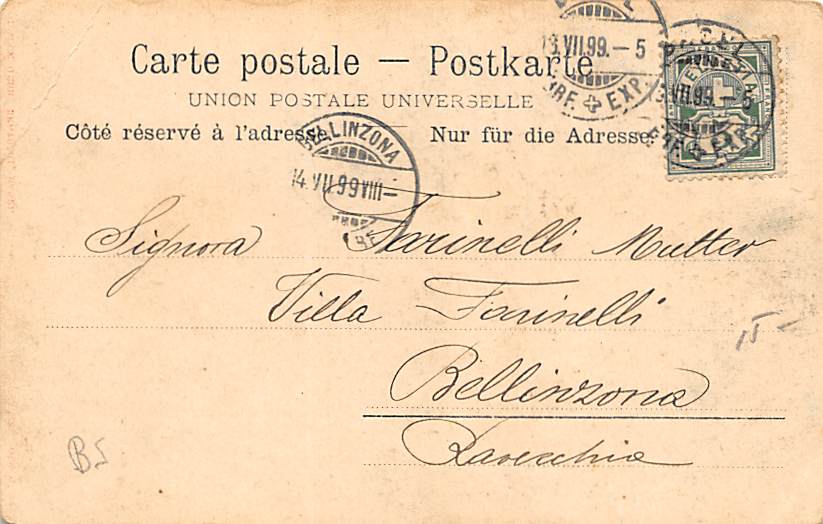 Carte postale — Postkarte
UNION POSTALE UNIVERSELLE
Côté réservé à l'adresse.
Nur für die Adresse.
13.VII.99.–5
BRF. EXP.
VII.99.–5
EXP.
BELLINZONA
14.VII.99 VIII–
Signora Farinelli Mutter
Villa Farinelli
Bellinzona
Ravecchia
15–
BS